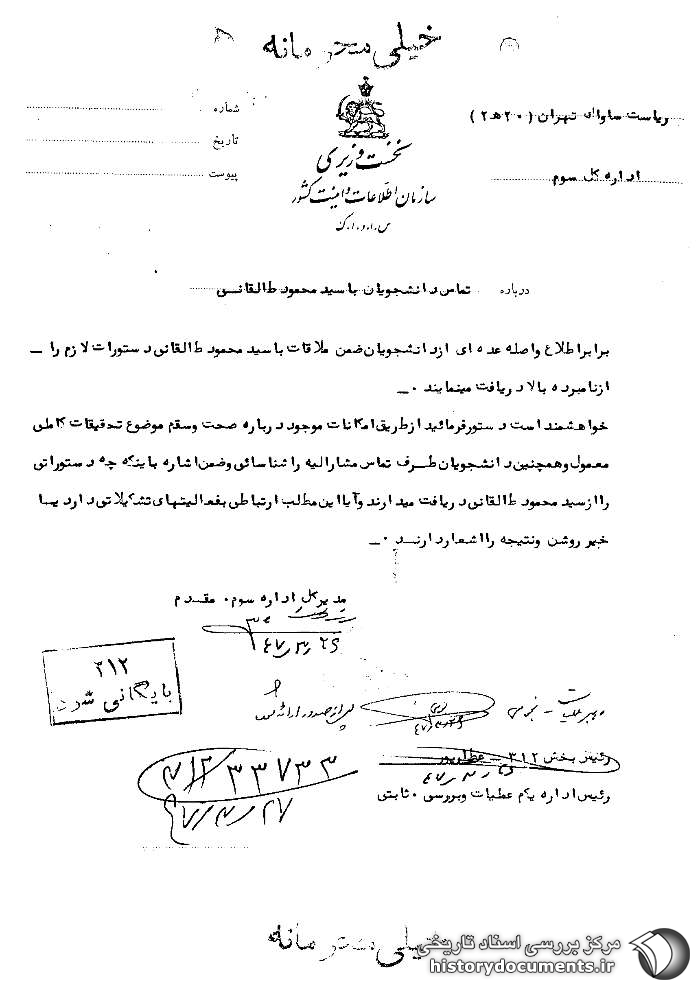 خیلی محرمانه
ریاست ساواک تهران ( ۲۰ ه ۲ )
اداره کل سوم
نخست وزیری
سازمان اطلاعات و امنیت کشور
س.ا.و.ا.ک
شماره
تاریخ
پیوست
درباره تماس دانشجویان با سید محمود طالقانی
برابر اطلاع واصله عده ای از دانشجویان ضمن ملاقات با سید محمود طالقانی دستورات لازم را ـ
از نامبرده بالا دریافت مینمایند ۰ـ
خواهشمند است دستور فرمائید از طریق امکانات موجود درباره صحت وسقم موضوع تحقیقات کاملی
معمول وهمچنین دانشجویان طرف تماس مشارالیه را شناسائی وضمن اشاره باینکه چه دستوراتی
را از سید محمود طالقانی دریافت میدارند وآیا این مطلب ارتباطی بفعالیتهای تشکیلاتی دارد یا
خیر روشن ونتیجه را اشعار دارند ۰ـ
مدیر کل اداره سوم ۰ مقدم
۴۷/۳/۲۶
۳۱۲
بایگانی شود
رهبر عملیات -
پس از صدور ارائه
رئیس بخش ۳۱۲ – عطارپور
رئیس اداره یکم عملیات وبررسی ۰ ثابتی
۳۱۲/۳۳۷۳۳
۴۷/۳/۲۷
خیلی محرمانه
مرکز بررسی اسناد تاریخی
historydocuments.ir